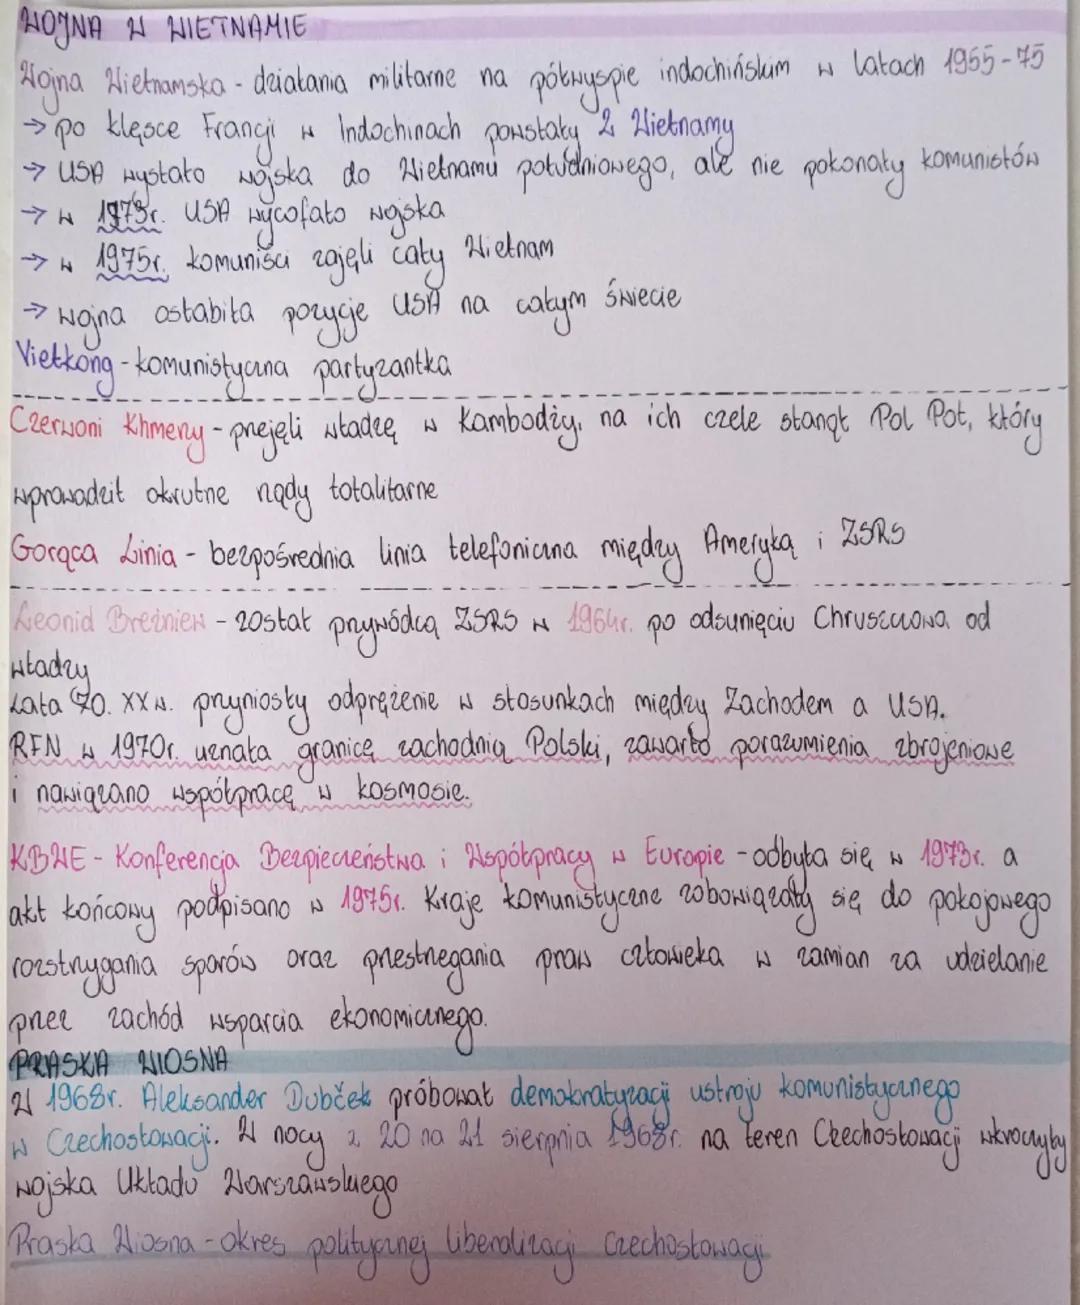 WOJNA W WIETNAMIE
Wojna Wietnamska - działania militarne na półwyspie indochińskim w latach 1955-75
→ po klęsce Francji w Indochinach powstały 2 Wietnamy
→ USA wysłało wojska do Wietnamu południowego, ale nie pokonały komunistów
→ w 1973r. USA wycofało wojska
→ w 1975r. komuniści zajęli cały Wietnam
→ wojna osłabiła pozycje USA na całym świecie
Vietkong - komunistyczna partyzantka
Czerwoni Khmerzy - przejęli władzę w Kambodży, na ich czele stanął Pol Pot, który
wprowadził okrutne rządy totalitarne
Gorąca Linia - bezpośrednia linia telefoniczna między Ameryką i ZSRS
Leonid Breżniew - został przywódcą ZSRS w 1964r. po odsunięciu Chruszczowa od
władzy
Lata 70. XX w. przyniosły odprężenie w stosunkach między Zachodem a USA.
RFN w 1970r. uznała granicę zachodnią Polski, zawarto porozumienia zbrojeniowe
i nawiązano współpracę w kosmosie.
KBWE - Konferencja Bezpieczeństwa i Współpracy w Europie - odbyła się w 1973r. a
akt końcowy podpisano w 1975r. Kraje komunistyczne zobowiązały się do pokojowego
rozstrzygania sporów oraz przestrzegania praw człowieka w zamian za udzielanie
przez zachód wsparcia ekonomicznego.
PRASKA WIOSNA
W 1968r. Aleksander Dubček próbował demokratyzacji ustroju komunistycznego
w Czechosłowacji. W nocy z 20 na 21 sierpnia 1968r. na teren Czechosłowacji wkroczyły
wojska Układu Warszawskiego
Praska Wiosna - okres politycznej liberalizacji Czechosłowacji